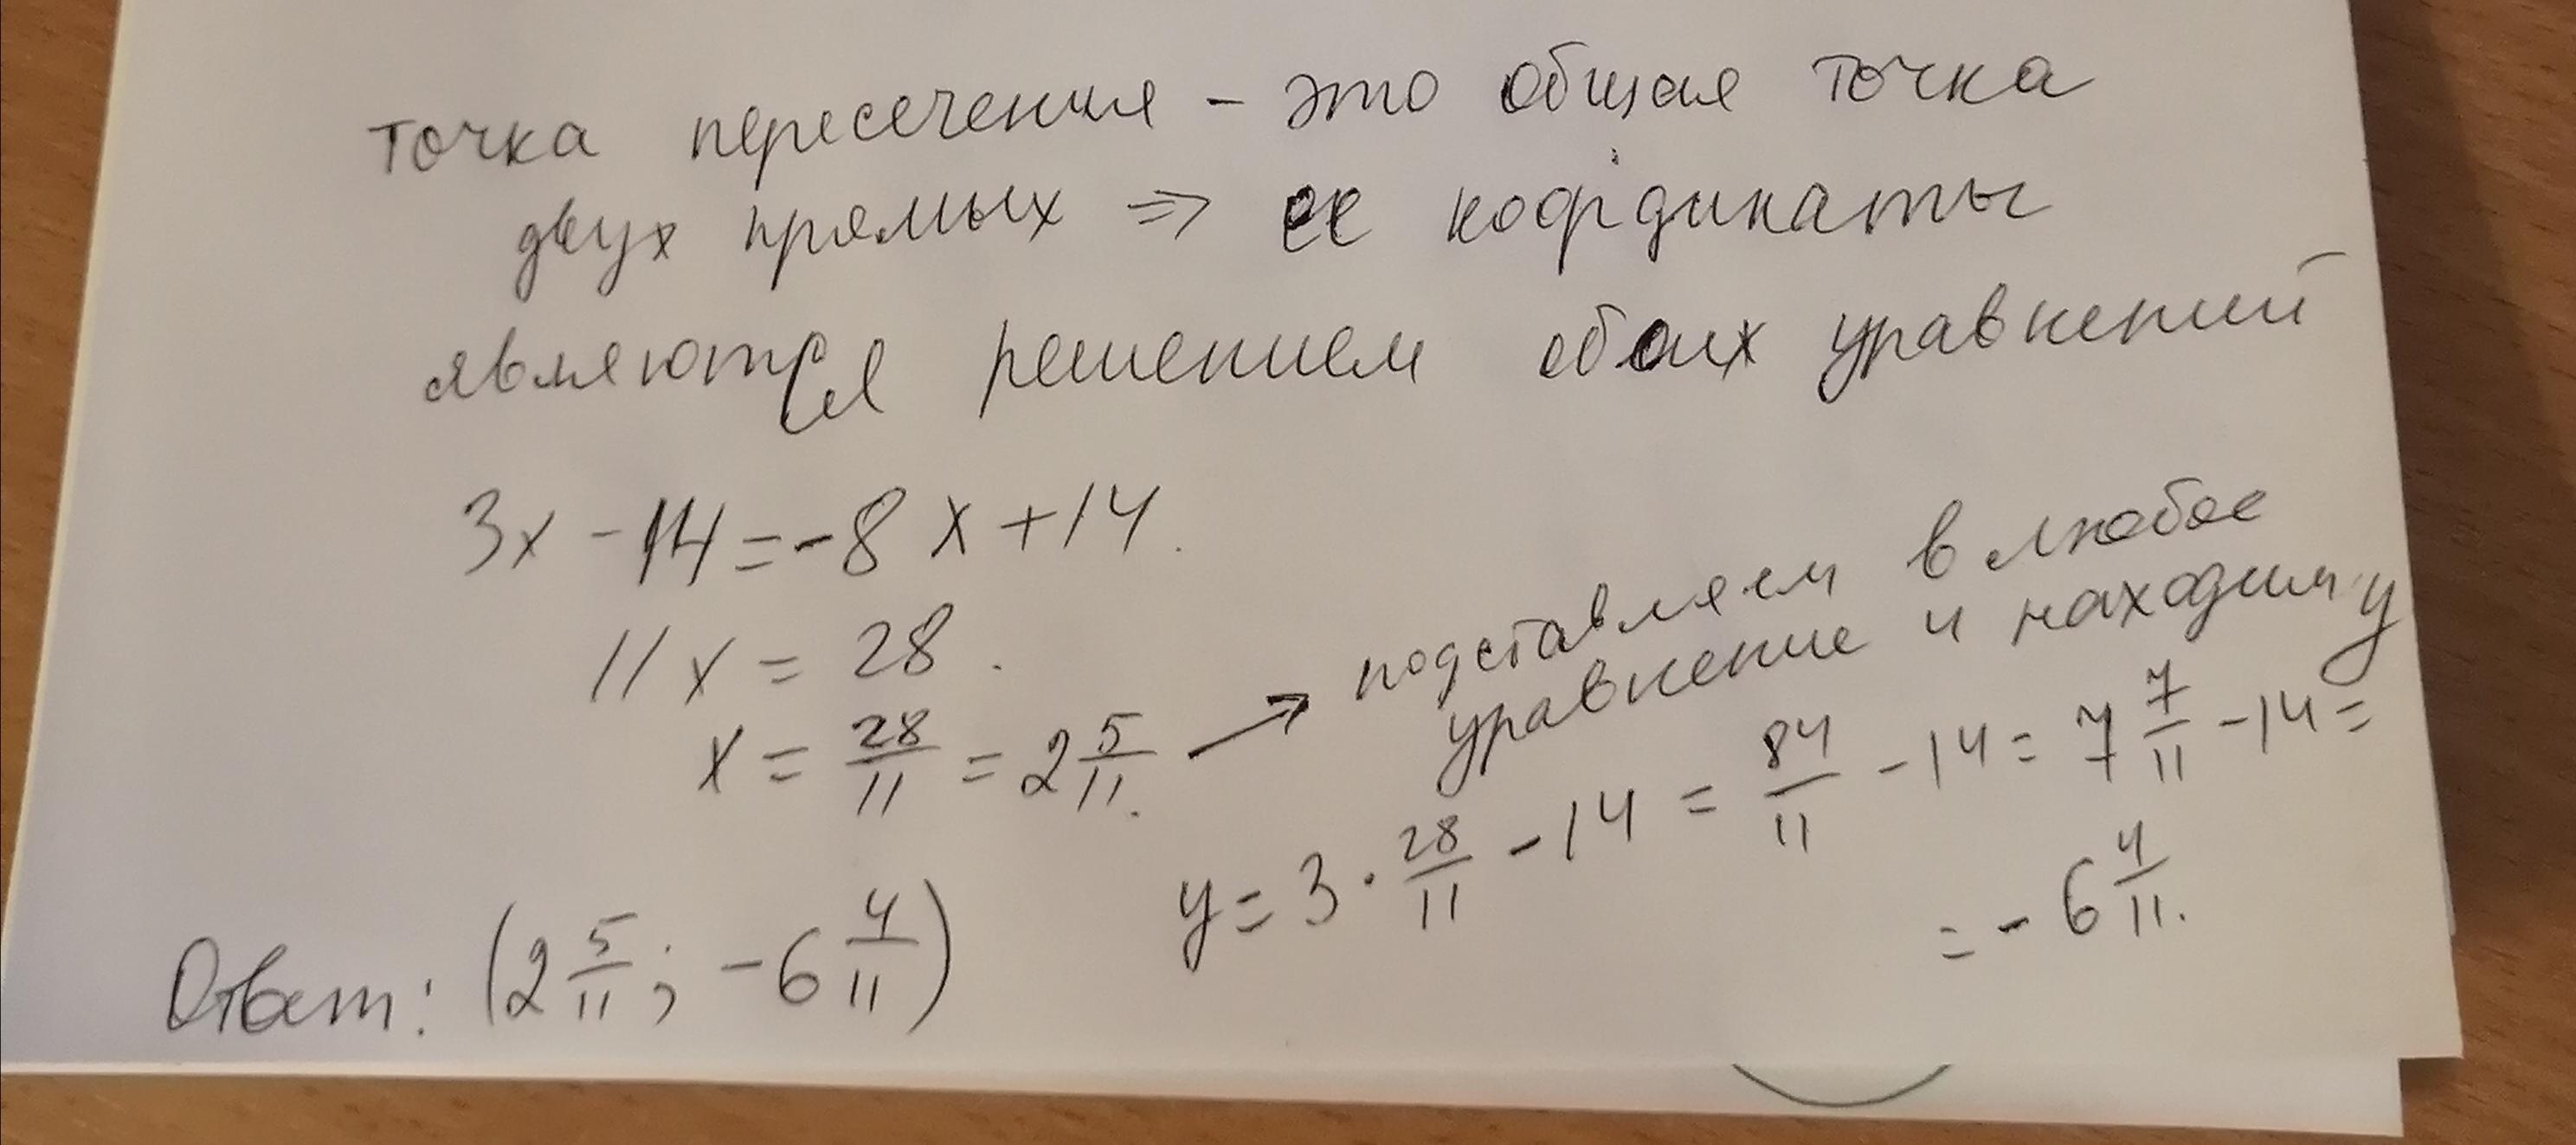 точка пересечения - это общая точка
двух прямых => ее координаты
являются решением обоих уравнений
3x - 14 = -8x + 14.
11x = 28.
x = 28/11 = 2 5/11. → подставляем в любое
уравнение и находим y
y = 3 · 28/11 - 14 = 84/11 - 14 = 7 7/11 - 14 =
= - 6 4/11.
Ответ: (2 5/11; -6 4/11)